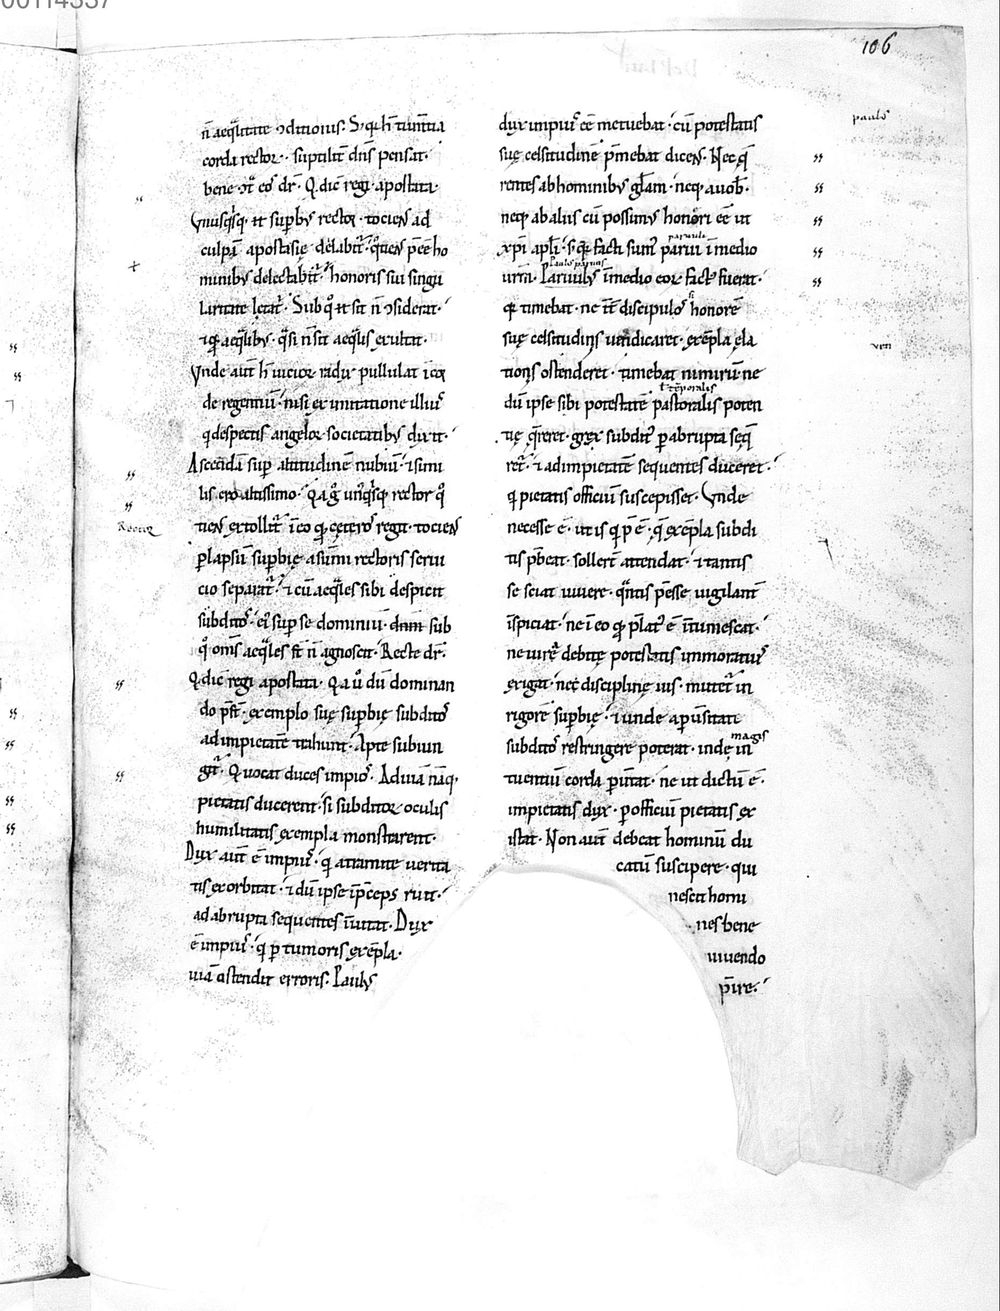 106
n̄ aequitate ↄditionis. S; q̨ h̄ tim̄tia
corda rector̨. suptilit̄ dn̄s pensat.
bene ↄt̄ eos dr̄. Q dic̄ regi apostata.
Vnusq̨sq̨ et sup̱bus rector. tociens ad
culpā apostasię delabit̄. quociens p̄ee̅ ho
minibus delectabit̄. honoris sui singu
laritate letat̄. Sub quo et sit n̄ ↄsiderat.
⁊ quasi n̄ sit aequalis exultat.
Vnde aut̄ h̄ vicior̨ radix pullulat ī cor̨
de regentiū. nisi ex imitatione illius
q despectis angelor̨ societatibus dixit.
Ascendā sup̱ altitudinē nubiū. ⁊ simi
lis ero altissimo. Q a g̊ unusq̨sq̨ rector quo
tiens extollit̄ īeo q̨ cęteros regit. tociens
p̱ lapsū sup̱bię a sūmi rectoris serui
cio separat̄. ⁊ cū aequales sibi despicit
subditos. eius sup̱ se dominiū sub
quo om̄s aequales st̄ n̄ agnoscit. Recte dr̄.
Q dic̄ regi apostata. Q a ů dū dominan
do p̄st̄. exemplo suę sup̱bię subditos
ad impietatē trahunt. Apte subiun
git̄. Q uocat duces impios. Ad uiā nāq̨
pietatis ducerent. si subditor̨ oculis
humilitatis exempla monstrarent.
Dux aut̄ ē impius. q̇ a tramite uerita
tis exorbitat. ⁊ dū ipse īp̄ceps ruit.
ad abrupta sequentes īuitat. Dux
ē impius. q̇ p̱ tumoris exēpla.
uiā ostendit erroris. Paulus
dux impius ēē metuebat. cū potestatis
suę celsitudinē p̄mebat dicens. Nec q̄
rentes ab hominibus gl̄am. neq̨ a uob̄.
neq̨ ab aliis cū possimus honori ēē ut
xp̄i apl̄i. s; q̨ facti sumus parui ī medio
urm̄. Paruulus ī medio eor̨ factus fuerat.
q̨ timebat. ne si discipulos honorē
suę celsitudinis uindicaret. exēpla ela
tionis ostenderet. timebat nimirū ne
dū ipse sibi potestatē pastoralis poten
tię q̄reret. grex subditus p̱ abrupta seq̄
ret̄. ⁊ ad impietatē sequentes duceret.
q̇ pietatis officiū suscepisset. Vnde
necesse ē. ut is q̇ p̄ ē. q̄ exēpla subdi
tis p̄beat. sollert̄ attendat. ⁊ tantis
se sciat uiuere. quantis p̄esse uigilant̄
īspiciat. ne ī eo q̨ platus ē ītumescat.
ne iure debitę potestatis immoratius
exigat. nec disciplinę ius. mutet̄ in
rigorē sup̱bię. ⁊ unde a p̱uersitate
subditos restringere poterat. inde in
tuentiū corda p̱uertat. ne ut dictū ē.
impietatis dux. p̱ officiū pietatis ex
istat. Non aut̄ debeat hominū du
catū suscipere. qui
nescit homi
nes bene
uiuendo
p̄ire.